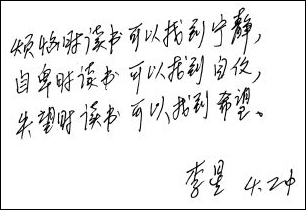 烦恼时读书可以找到宁静，
自卑时读书可以找到自信，
失望时读书可以找到希望。
李星 4.23